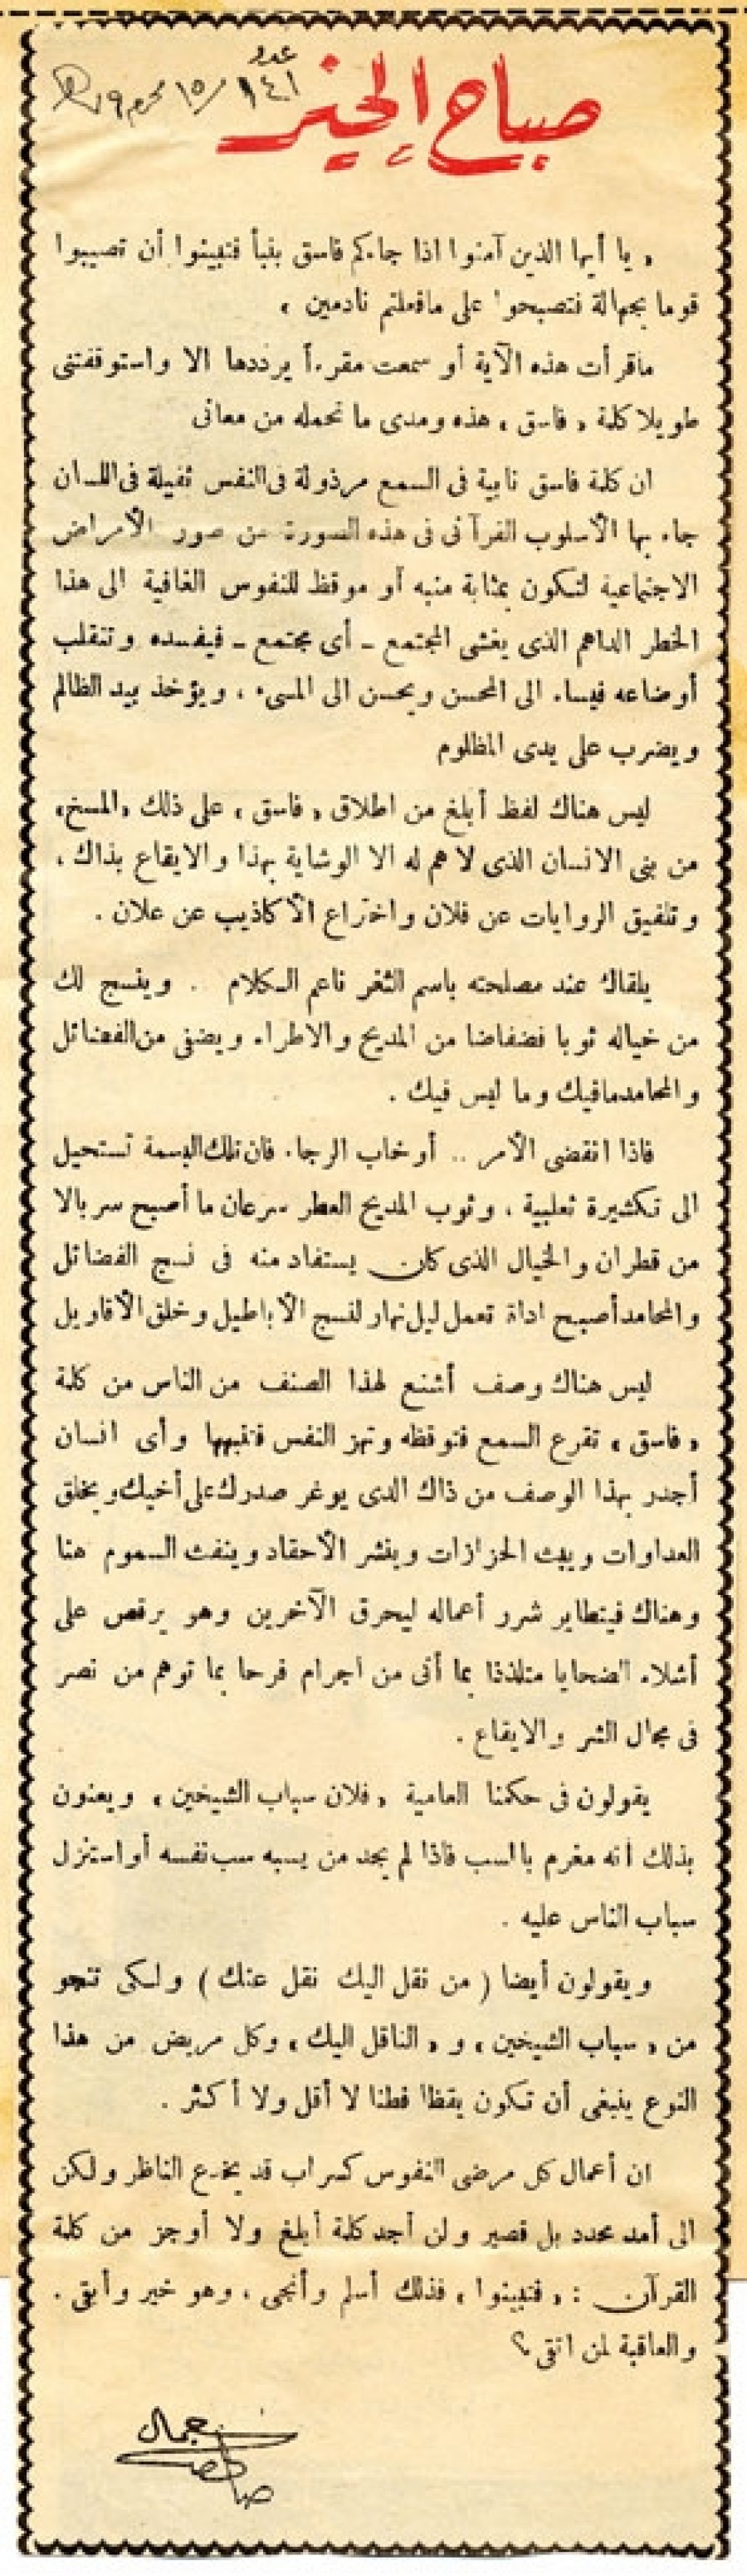 صباح الخير
عدد
١٤١ / ١٥ محرم ٧٩
« يا أيها الذين آمنوا اذا جاءكم فاسق بنبأ فتبينوا أن تصيبوا
قوما بجهالة فتصبحوا على مافعلتم نادمين »
ماقرأت هذه الآية أو سمعت مقرءاً يرددها الا واستوقفتنى
طويلا كلمة « فاسق » هذه ومدى ما تحمله من معانى
ان كلمة فاسق نابية فى السمع مرذولة فى النفس ثقيلة فى اللسان
جاء بها الأسلوب القرآنى فى هذه السورة من صور الأمراض
الاجتماعية لتكون بمثابة منبه أو موقظ للنفوس الغافية الى هذا
الخطر الداهم الذى يغشى المجتمع ــ أى مجتمع ــ فيفسده وتنقلب
أوضاعه فيساء الى المحسن ويحسن الى المسىء ، ويؤخذ بيد الظالم
ويضرب على يدى المظلوم
ليس هناك لفظ أبلغ من اطلاق « فاسق » على ذلك «المسخ»
من بنى الانسان الذى لا هم له الا الوشاية بهذا والايقاع بذاك ،
وتلفيق الروايات عن فلان واختراع الأكاذيب عن علان .
يلقاك عند مصلحته باسم الثغر ناعم الكلام . وينسج لك
من خياله ثوبا فضفاضا من المديح والاطراء ويضفى من الفضائل
والمحامد مافيك وما ليس فيك .
فاذا انقضى الأمر .. أو خاب الرجاء فان تلك البسمة تستحيل
الى تكشيرة ثعلبية ، وثوب المديح العطر سرعان ما أصبح سربالا
من قطران والخيال الذى كان يستفاد منه فى نسج الفضائل
والمحامد أصبح اداة تعمل ليل نهار لنسج الأباطيل وخلق الأقاويل
ليس هناك وصف أشنع لهذا الصنف من الناس من كلمة
« فاسق » تقرع السمع فتوقظه وتهز النفس فتنبهها وأى انسان
أجدر بهذا الوصف من ذاك الذى يوغر صدرك على أخيك ويخلق
العداوات ويبث الحزازات وينشر الأحقاد وينفث السموم هنا
وهناك فيتطاير شرر أعماله ليحرق الآخرين وهو يرقص على
أشلاء الضحايا متلذذا بما أتى من اجرام فرحا بما توهم من نصر
فى مجال الشر والايقاع .
يقولون فى حكمنا العامية « فلان سباب الشيخين » ويعنون
بذلك أنه مغرم بالسب فاذا لم يجد من يسبه سب نفسه أو استنزل
سباب الناس عليه .
ويقولون أيضا ( من نقل اليك نقل عنك ) ولكى تنجو
من « سباب الشيخين » و « الناقل اليك » وكل مريض من هذا
النوع ينبغى أن تكون يقظا فطنا لا أقل ولا أكثر .
ان أعمال كل مرضى النفوس كسراب قد يخدع الناظر ولكن
الى أمد محدد بل قصير ولن أجد كلمة أبلغ ولا أوجز من كلمة
القرآن : « فتبينوا » فذلك أسلم وأنجى ، وهو خير وأبقى .
والعاقبة لمن اتقى ؟
جمال